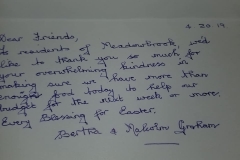 4.20.19
Dear Friends,
To residents of Meadowbrook, we'd
like to thank you so much for
your overwhelming kindness in
making sure we have more than
enough food today to help our
budget for the next week or more.
Every Blessing for Easter.
Bertha & Malcolm Graham